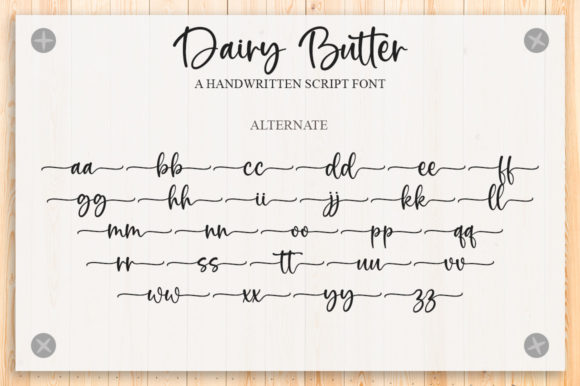 Dairy Butter
A HANDWRITTEN SCRIPT FONT
ALTERNATE
aa bb cc dd ee ff
gg hh ii jj kk ll
mm nn oo pp qq
rr ss tt uu vv
ww xx yy zz